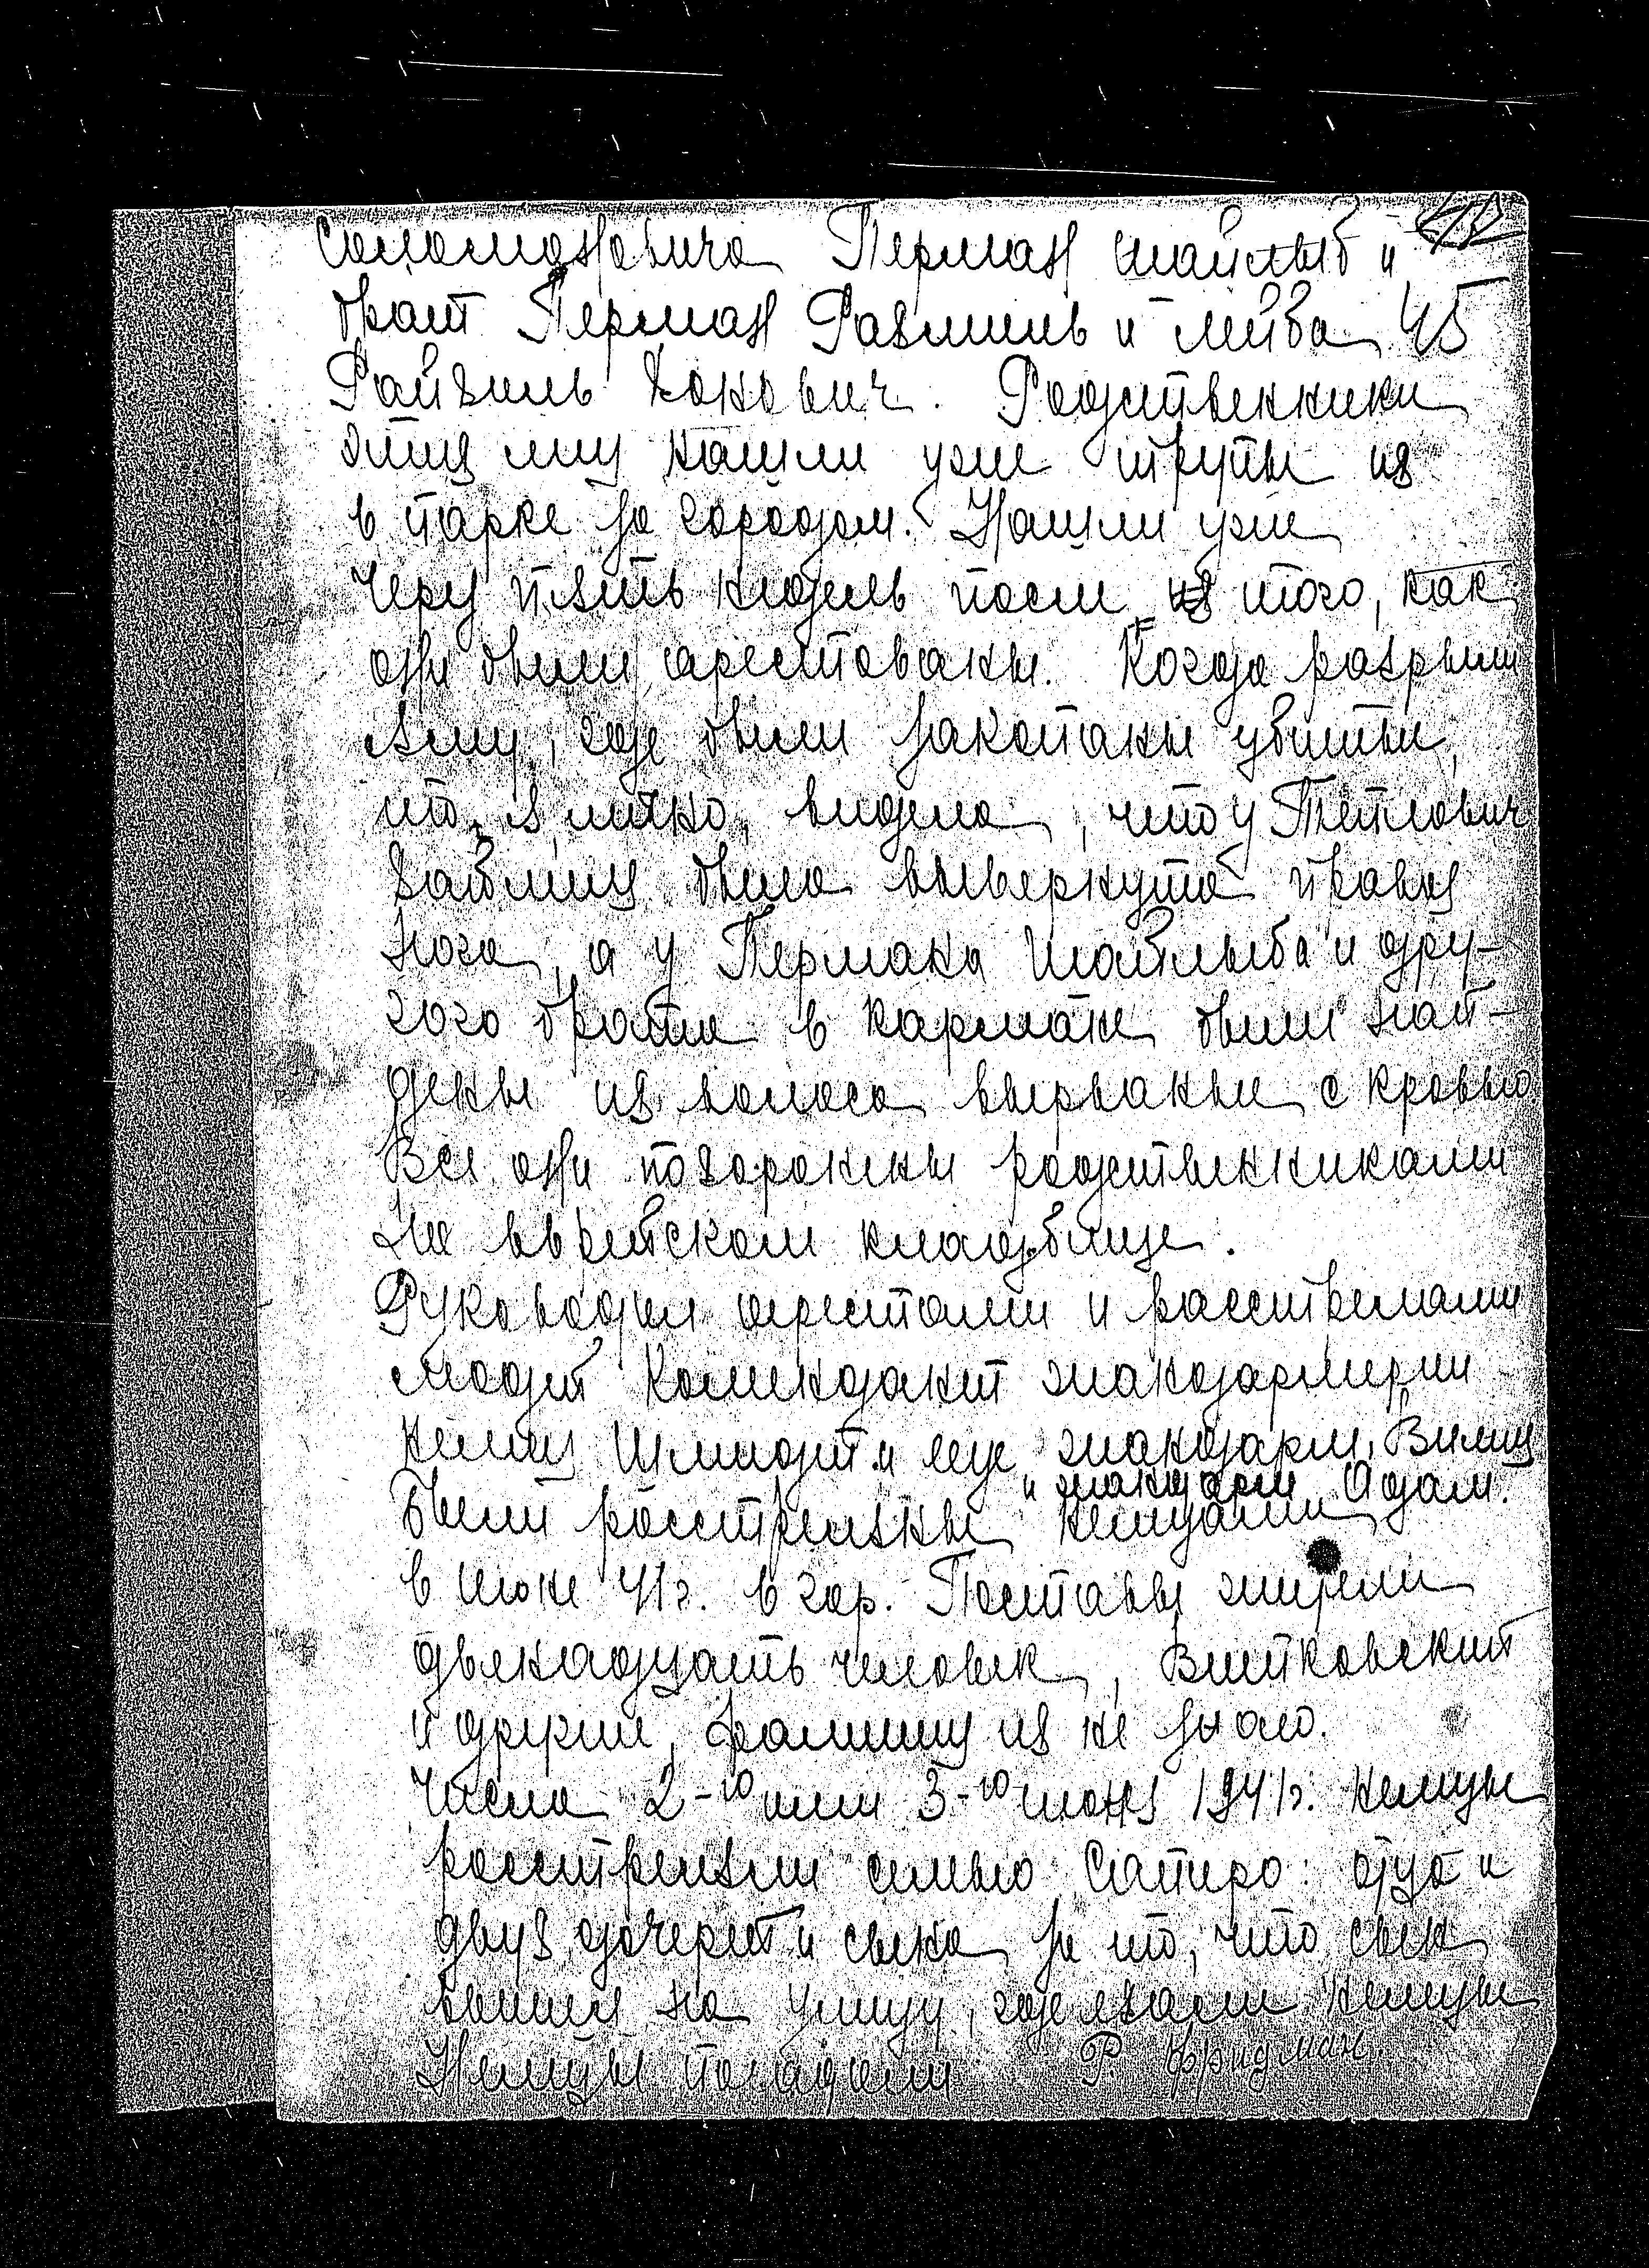 Соломоновича Перман Шайлыб и
брат Перман Рахмиль и Лейба 45
Райхель Хонович. Родственники
этих лиц нашли уже трупы их
в парке за городом. Нашли уже
через пять недель после их того, как
они были арестованы. Когда разрыли
яму, где были закопаны убитые,
то я лично видела, что у Петлович
Зайлиц была вывернута правая
нога, а у Пермана Шайлыба и дру-
гого брата в кармане были най-
дены их волоса вырваные с кровью
Все они похоронены родственниками
на еврейском кладбище.
Руководил арестами и расстрелами
людей комендант жандармерии
немец Шмидт и еще жандарм Вилли
и жандарм Адам.
Были расстреляны немцами
в июне 41г. в гор. Поставы жители
двенадцать человек, Витковский
и другие, фамилии их не знаю.
Числа 2-го или 3-го июня 1941г. немцы
расстреляли семью Сапиро: отца и
двух дочерей и сына за то, что сын
вышел на улицу, где ехали немцы
Немцы погадали Р. Фридман